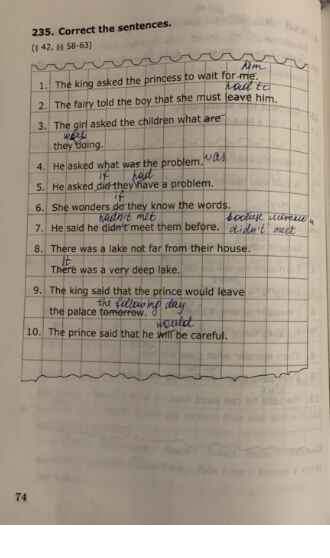 235. Correct the sentences.
(§ 42, §§ 58-63)
him
1. The king asked the princess to wait for me.
had to
2. The fairy told the boy that she must leave him.
3. The girl asked the children what are
were
they doing.
4. He asked what was the problem. was
if had
5. He asked did they have a problem.
if
6. She wonders do they know the words.
hadn't met
7. He said he didn't meet them before.
didn't meet
8. There was a lake not far from their house.
It
There was a very deep lake.
9. The king said that the prince would leave
the following day
the palace tomorrow.
would
10. The prince said that he will be careful.
74